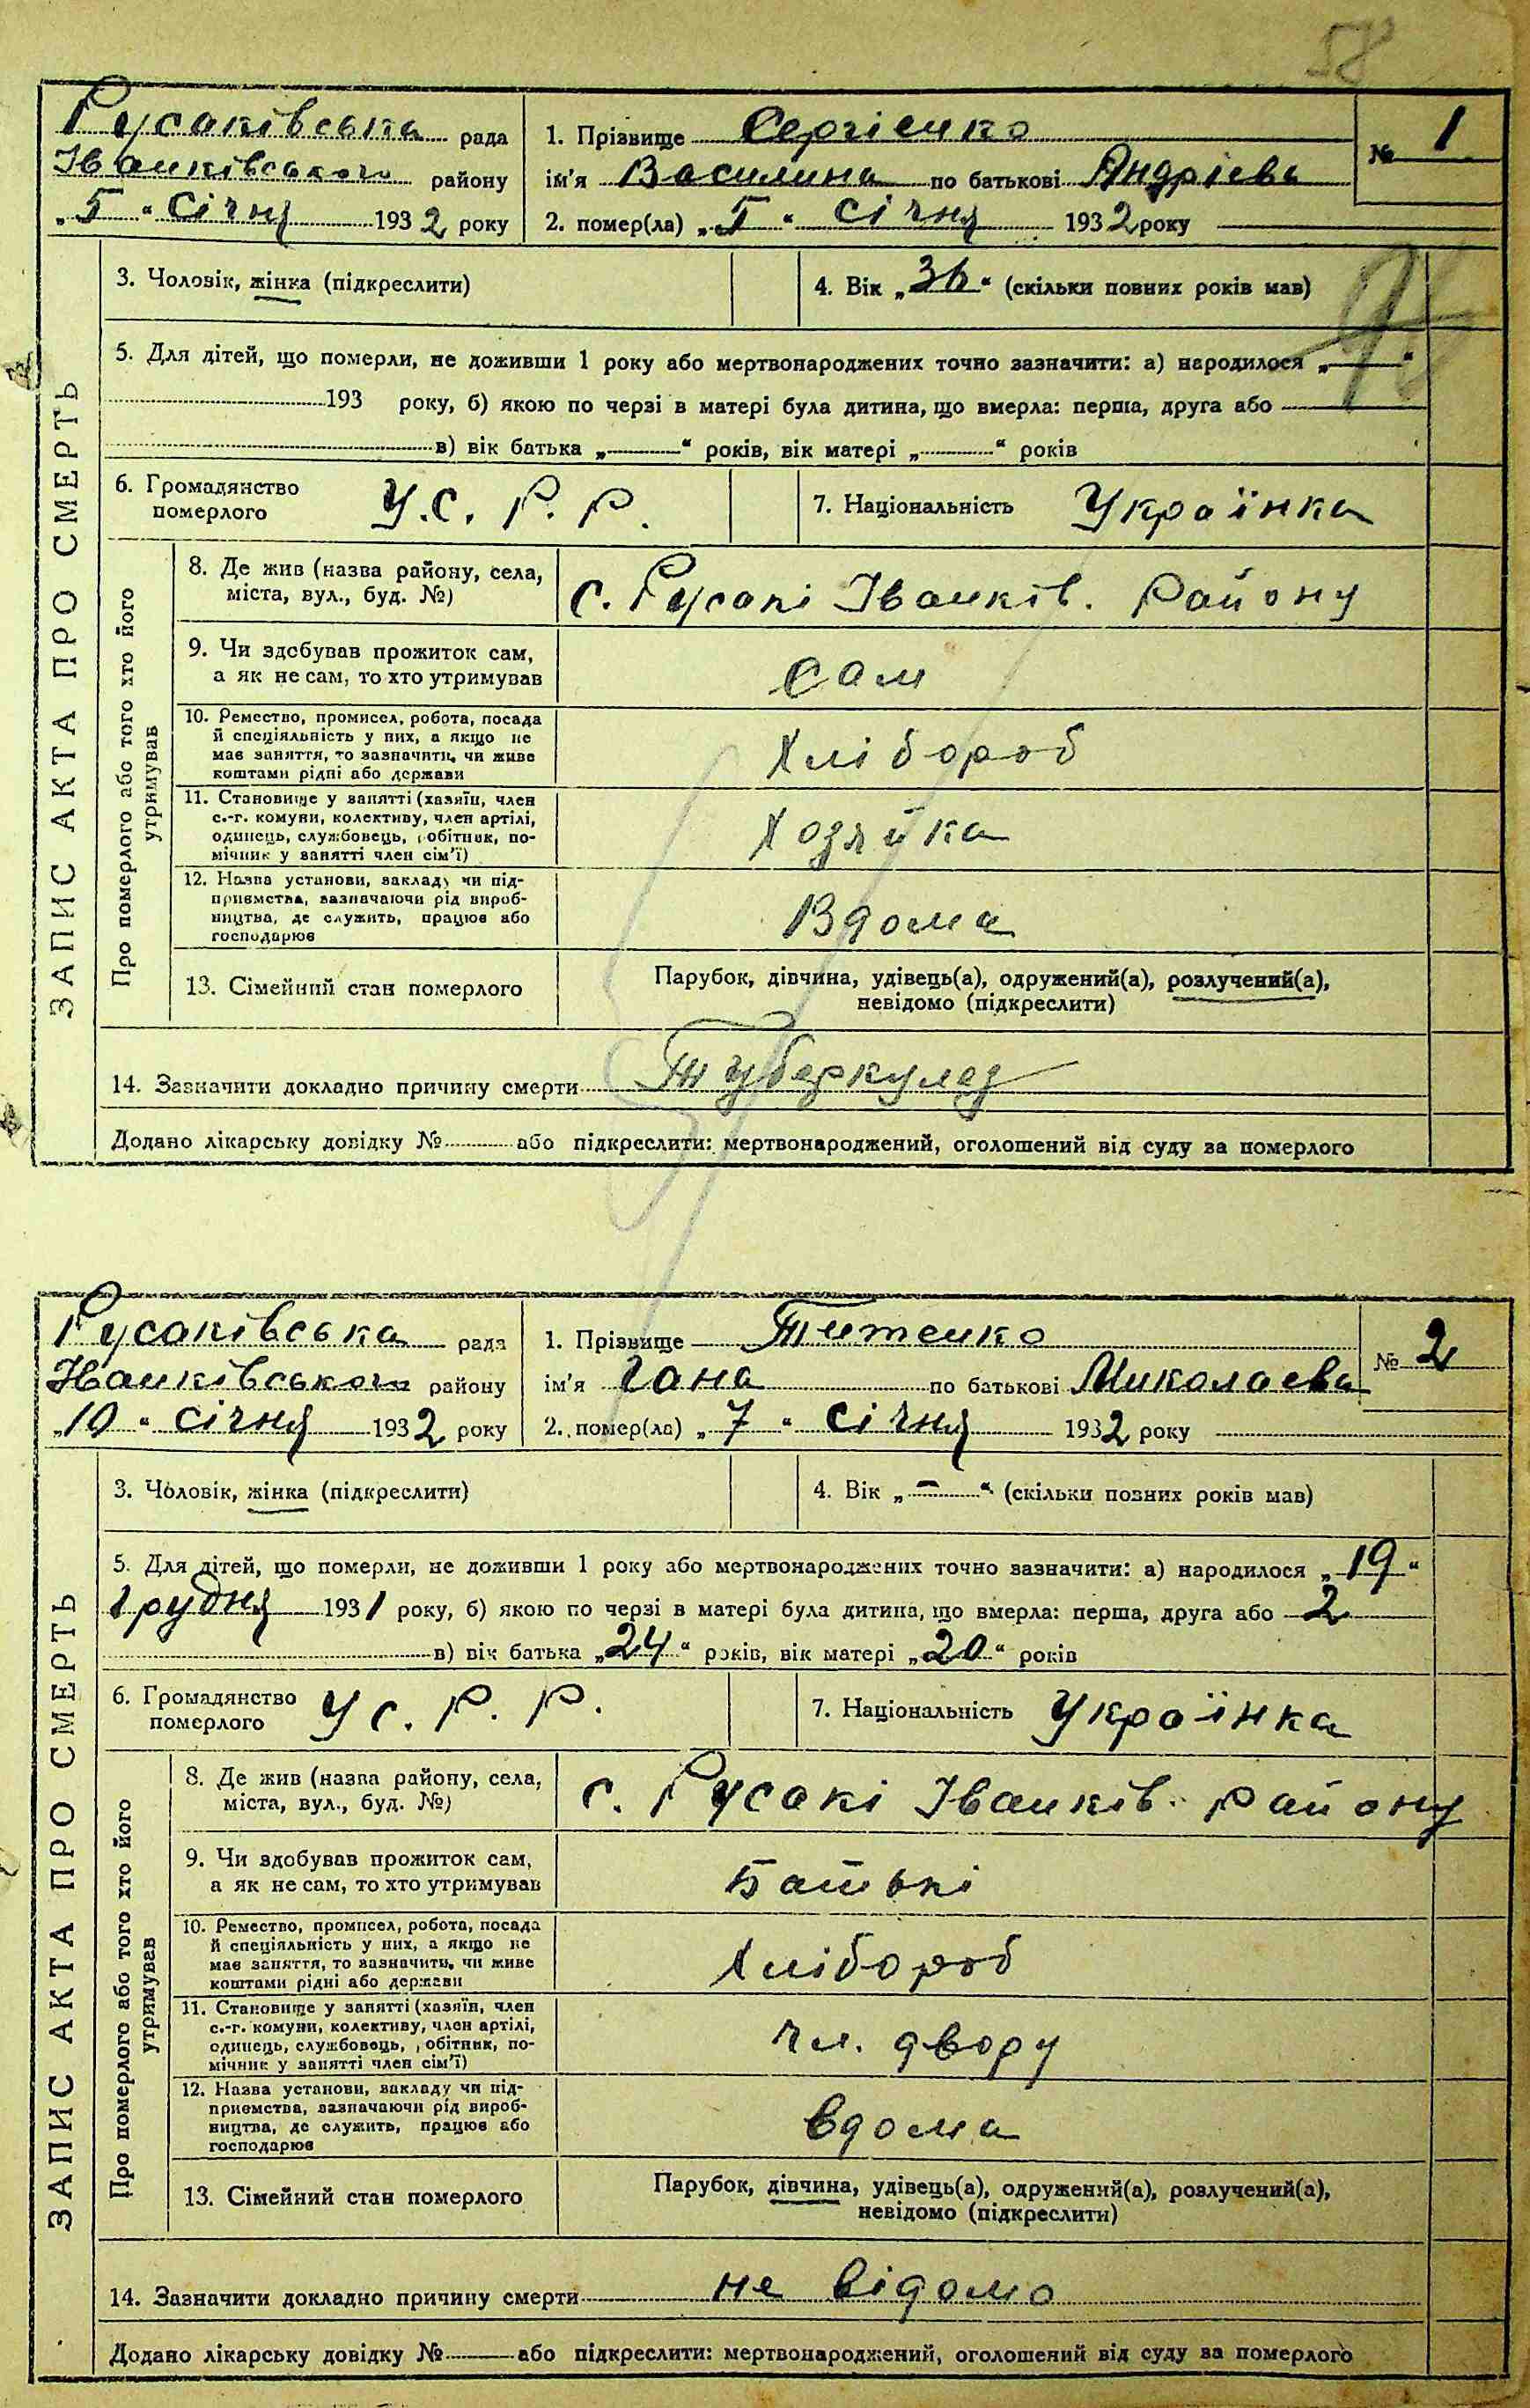 58
Русаківська рада
Іванківського району
„5“ Січня 1932 року
1. Прізвище Сергієнко
ім'я Василина по батькові Андрієва
2. помер(ла) „5“ січня 1932 року
№ 1
ЗАПИС АКТА ПРО СМЕРТЬ
3. Чоловік, жінка (підкреслити)
4. Вік „36“ (скільки повних років мав)
5. Для дітей, що померли, не доживши 1 року або мертвонароджених точно зазначити: а) народилося „—“
193 року, б) якою по черзі в матері була дитина, що вмерла: перша, друга або —
в) вік батька „—“ років, вік матері „—“ років
6. Громадянство
померлого
У.С.Р.Р.
7. Національність Українка
Про померлого або того хто його
утримував
8. Де жив (назва району, села,
міста, вул., буд. №)
с. Русакі Іванків. Району
9. Чи здобував прожиток сам,
а як не сам, то хто утримував
Сам
10. Ремество, промисел, робота, посада
й спеціяльність у них, а якщо не
має заняття, то зазначити, чи живе
коштами рідні або держави
Хлібороб
11. Становище у занятті (хазяїн, член
с.-г. комуни, колективу, член артілі,
одинець, службовець, робітник, по-
мічник у занятті член сім'ї)
Хозяйка
12. Назва установи, закладу чи під-
приємства, зазначаючи рід вироб-
ництва, де служить, працює або
господарює
Вдома
13. Сімейний стан померлого
Парубок, дівчина, удівець(а), одружений(а), розлучений(а),
невідомо (підкреслити)
14. Зазначити докладно причину смерти Туберкулез
Додано лікарську довідку № або підкреслити: мертвонароджений, оголошений від суду за померлого
Русаківська рада
Іванківського району
„10“ січня 1932 року
1. Прізвище Титенко
ім'я Гана по батькові Миколаєва
2. помер(ла) „7“ січня 1932 року
№ 2
ЗАПИС АКТА ПРО СМЕРТЬ
3. Чоловік, жінка (підкреслити)
4. Вік „—“ (скільки повних років мав)
5. Для дітей, що померли, не доживши 1 року або мертвонароджених точно зазначити: а) народилося „19“
грудня 1931 року, б) якою по черзі в матері була дитина, що вмерла: перша, друга або 2
в) вік батька „24“ років, вік матері „20“ років
6. Громадянство
померлого
У с. Р. Р.
7. Національність Українка
Про померлого або того хто його
утримував
8. Де жив (назва району, села,
міста, вул., буд. №)
с. Русакі Іванків. Району
9. Чи здобував прожиток сам,
а як не сам, то хто утримував
Батькі
10. Ремество, промисел, робота, посада
й спеціяльність у них, а якщо не
має заняття, то зазначити, чи живе
коштами рідні або держави
Хлібороб
11. Становище у занятті (хазяїн, член
с.-г. комуни, колективу, член артілі,
одинець, службовець, робітник, по-
мічник у занятті член сім'ї)
чл. двору
12. Назва установи, закладу чи під-
приємства, зазначаючи рід вироб-
ництва, де служить, працює або
господарює
вдома
13. Сімейний стан померлого
Парубок, дівчина, удівець(а), одружений(а), розлучений(а),
невідомо (підкреслити)
14. Зазначити докладно причину смерти не відомо
Додано лікарську довідку № або підкреслити: мертвонароджений, оголошений від суду за померлого